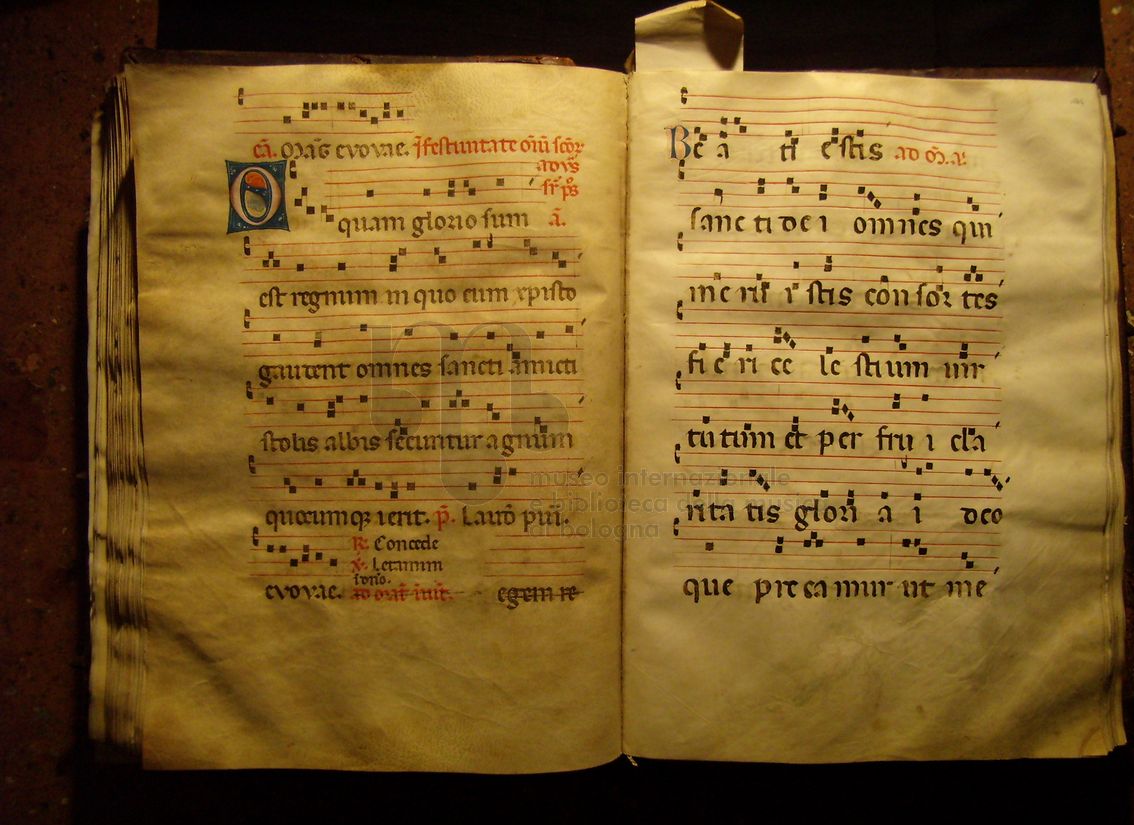 oraīs evovae. In festiuitate oīū scōꝝ
ad vs̄
O quam glorio sum a.
est regnum in quo cum xpisto
gaudent omnes sancti amicti
stolis albis secuntur agnum
quocumqꝫ ierit. p̄. Laud pūi.
R. Concede
V. Letamini
evovae.
egem re
Be a ti estis
sanc ti de i omnes qui
me ru i stis con sor tes
fi e ri ce le stium uir
tu tum et per fru i cla
rita tis glori a i deo
que pre ca mur ut me
museo internazionale
e biblioteca della musica
di bologna